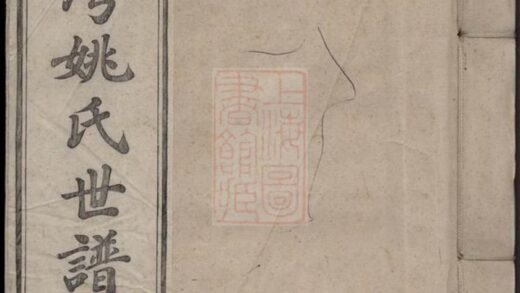 姚氏世譜
上海圖
書館藏